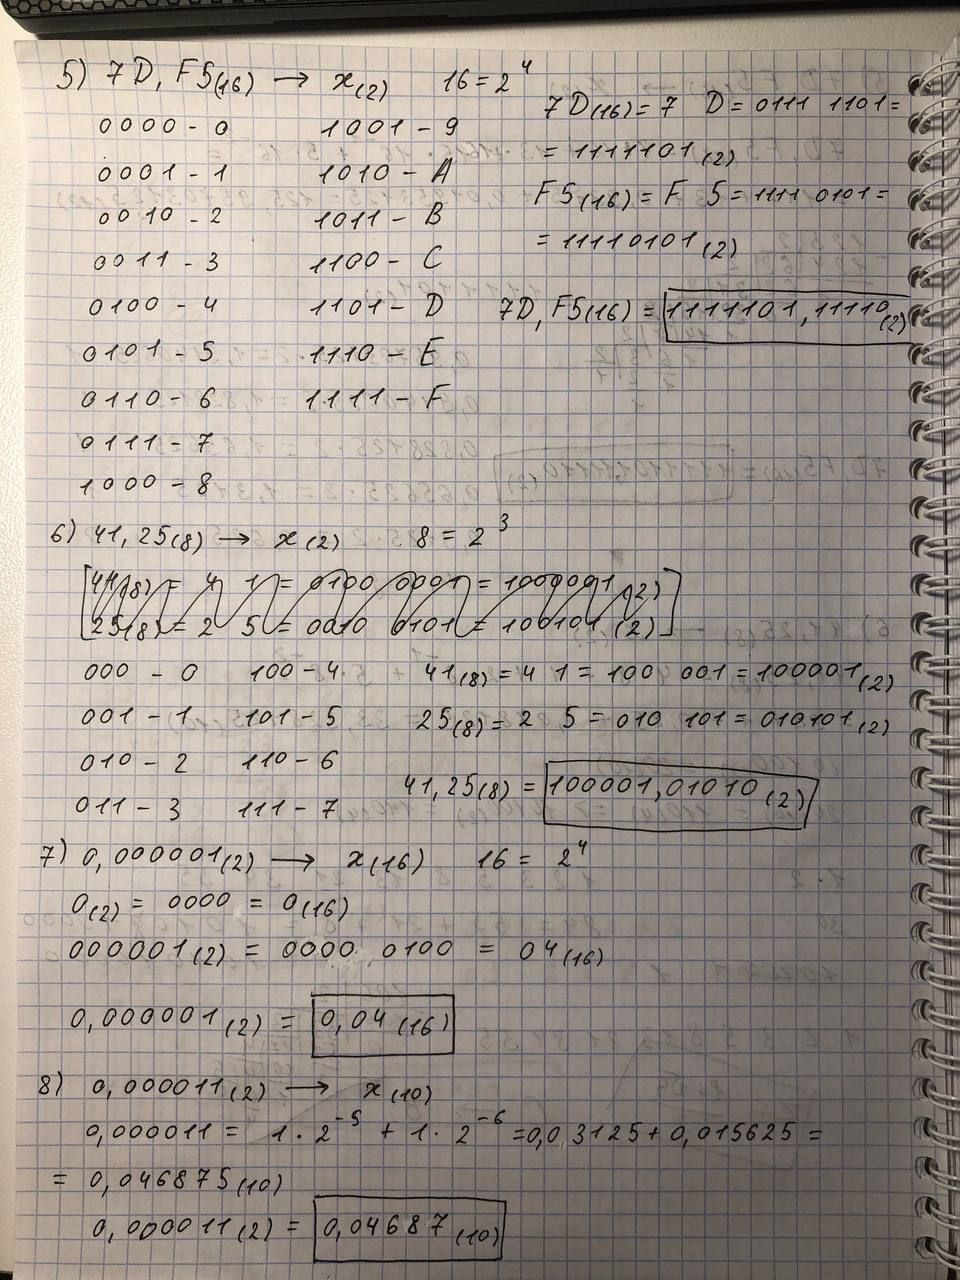 5) 7D,F5(16) → x(2) 16 = 2^4
0000 - 0 1001 - 9
0001 - 1 1010 - A
0010 - 2 1011 - B
0011 - 3 1100 - C
0100 - 4 1101 - D
0101 - 5 1110 - E
0110 - 6 1111 - F
0111 - 7
1000 - 8
7D(16) = 7 D = 0111 1101 =
= 1111101(2)
F5(16) = F 5 = 1111 0101 =
= 11110101(2)
7D,F5(16) = 1111101,11110(2)
6) 41,25(8) → x(2) 8 = 2^3
41(8) = 4 1 = 0100 0001 = 1000001(2)
25(8) = 2 5 = 0010 0101 = 100101(2)
000 - 0 100 - 4
001 - 1 101 - 5
010 - 2 110 - 6
011 - 3 111 - 7
41(8) = 4 1 = 100 001 = 100001(2)
25(8) = 2 5 = 010 101 = 010101(2)
41,25(8) = 100001,01010(2)
7) 0,000001(2) → x(16) 16 = 2^4
0(2) = 0000 = 0(16)
000001(2) = 0000 0100 = 04(16)
0,000001(2) = 0,04(16)
8) 0,000011(2) → x(10)
0,000011 = 1 · 2^-5 + 1 · 2^-6 = 0,03125 + 0,015625 =
= 0,046875(10)
0,000011(2) = 0,04687(10)